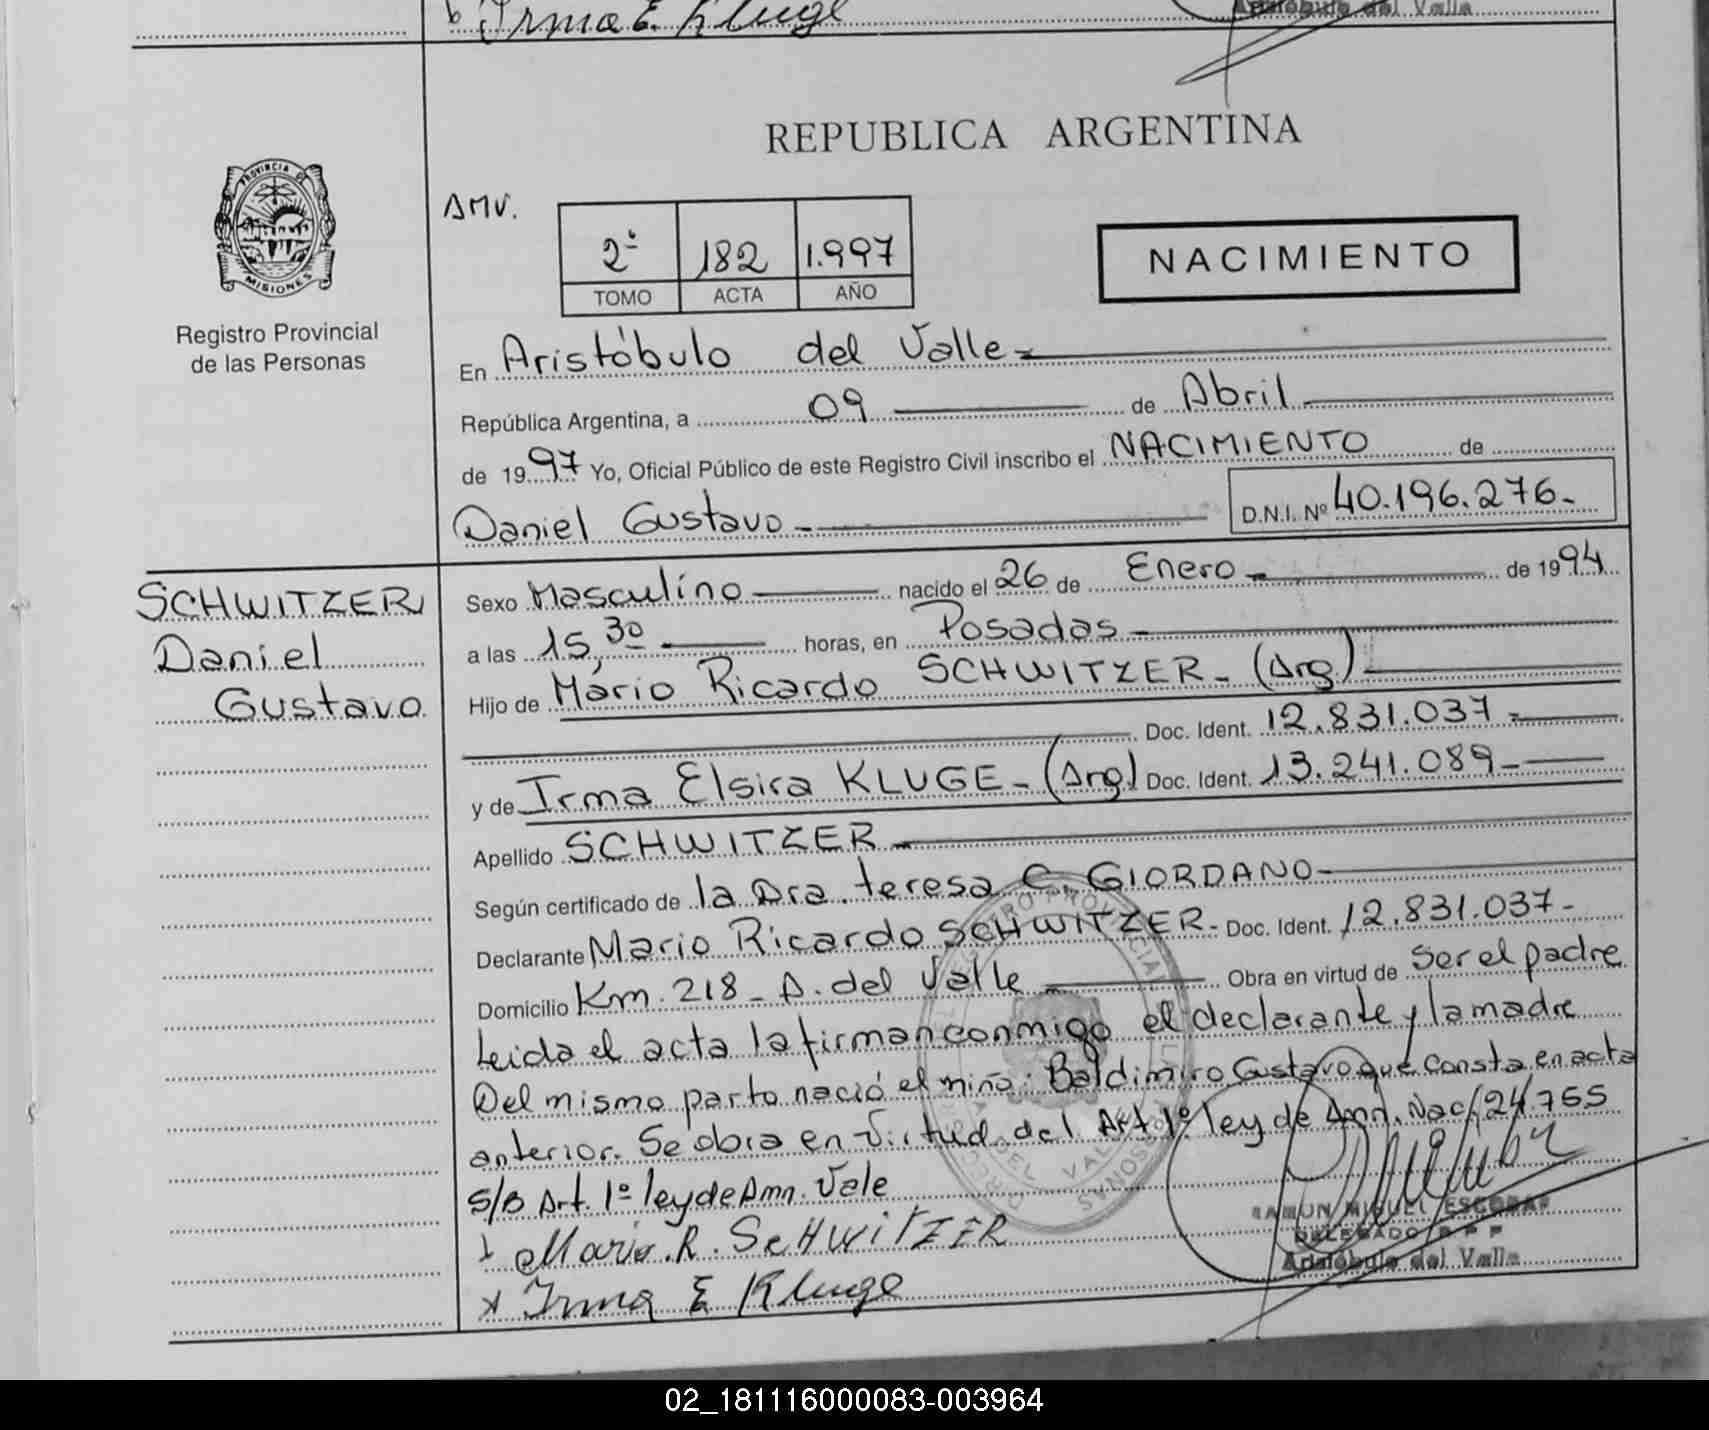 Irma E. Kluge
Aristóbulo del Valle
REPUBLICA ARGENTINA
PROVINCIA DE
MISIONES
Registro Provincial
de las Personas
AMV.
2º 182 1.997
TOMO ACTA AÑO
NACIMIENTO
En Aristóbulo del Valle
República Argentina, a 09 de Abril
de 1997 Yo, Oficial Público de este Registro Civil inscribo el NACIMIENTO de
Daniel Gustavo D.N.I. Nº 40.196.276.-
SCHWITZER
Daniel
Gustavo
Sexo Masculino nacido el 26 de Enero de 1994
a las 15,30 horas, en Posadas
Hijo de Mario Ricardo SCHWITZER - (Arg)
Doc. Ident. 12.831.037
y de Irma Elsira KLUGE - (Arg) Doc. Ident. 13.241.089
Apellido SCHWITZER
Según certificado de la Dra. teresa C. GIORDANO
Declarante Mario Ricardo SCHWITZER - Doc. Ident. 12.831.037-
Domicilio Km. 218 - A. del Valle Obra en virtud de Ser el padre
Leida el acta la firman conmigo el declarante y la madre
Del mismo parto nació el niño: Baldimiro Gustavo que consta en acta
anterior. Se obra en virtud del Art. 1º ley de Amn. Nac. 24.755
S/B Art. 1º ley de Amn. Vale
Mario. R. SCHWITZER
x Irma E Kluge
RAMON MIGUEL ESCOBAR
DELEGADO R P P
Aristóbulo del Valle
02_181116000083-003964